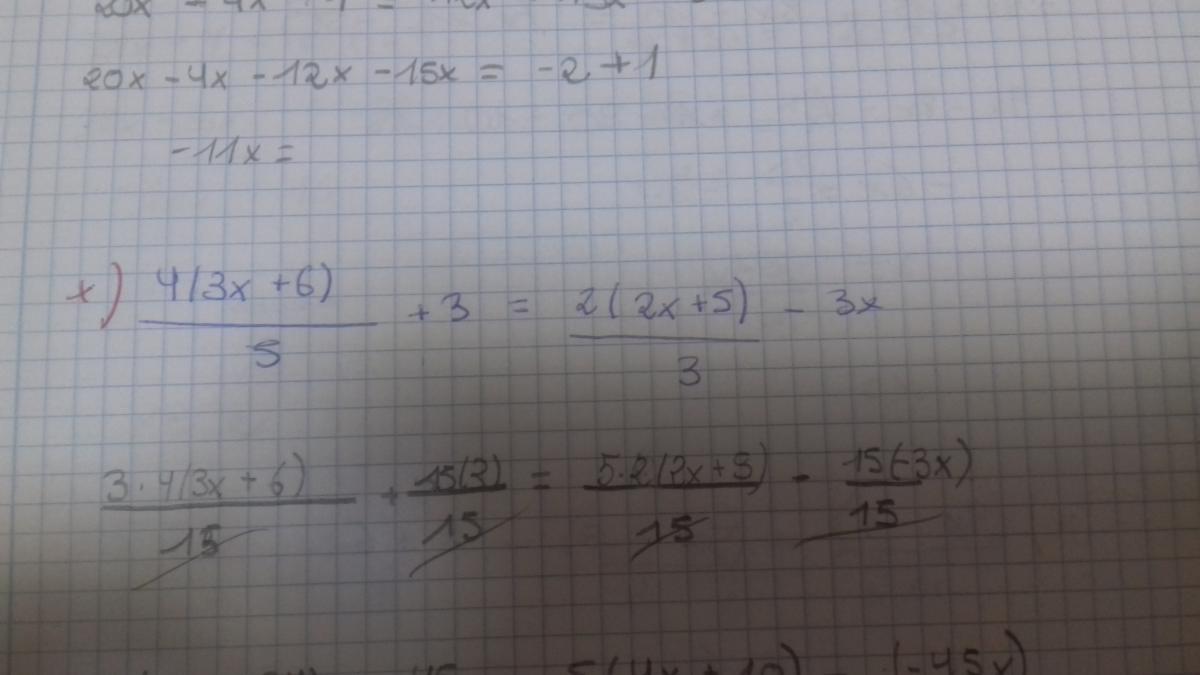 20x - 4x - 12x - 15x = -2 + 1
-11x =
x) 4(3x + 6) / 5 + 3 = 2(2x + 5) / 3 - 3x
3·4(3x + 6) / 15 + 15(3) / 15 = 5·2(2x + 5) / 15 - 15(-3x) / 15
5(4x + 10) (-45x)